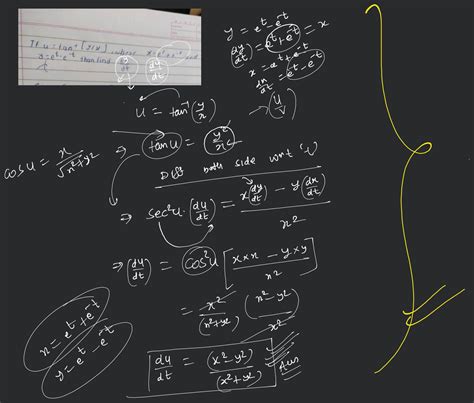 If u = tan⁻¹(y/x) where x = eᵗ + e⁻ᵗ and
y = eᵗ - e⁻ᵗ then find du/dt
y = eᵗ - e⁻ᵗ
(dy/dt) = eᵗ + e⁻ᵗ = x
x = eᵗ + e⁻ᵗ
dx/dt = eᵗ - e⁻ᵗ
(U/V)
u = tan⁻¹(y/x)
cos u = x/√x²+y²
⇒ tan u = (y/x)
Diff both side wrt 't'
⇒ sec²u · (du/dt) = x(dy/dt) - y(dx/dt) / x²
⇒ (du/dt) = cos²u [x×x - y×y / x²]
= x²/(x²+y²) (x²-y²)/x²
x = eᵗ + e⁻ᵗ
y = eᵗ - e⁻ᵗ
du/dt = (x²-y²)/(x²+y²) Ans